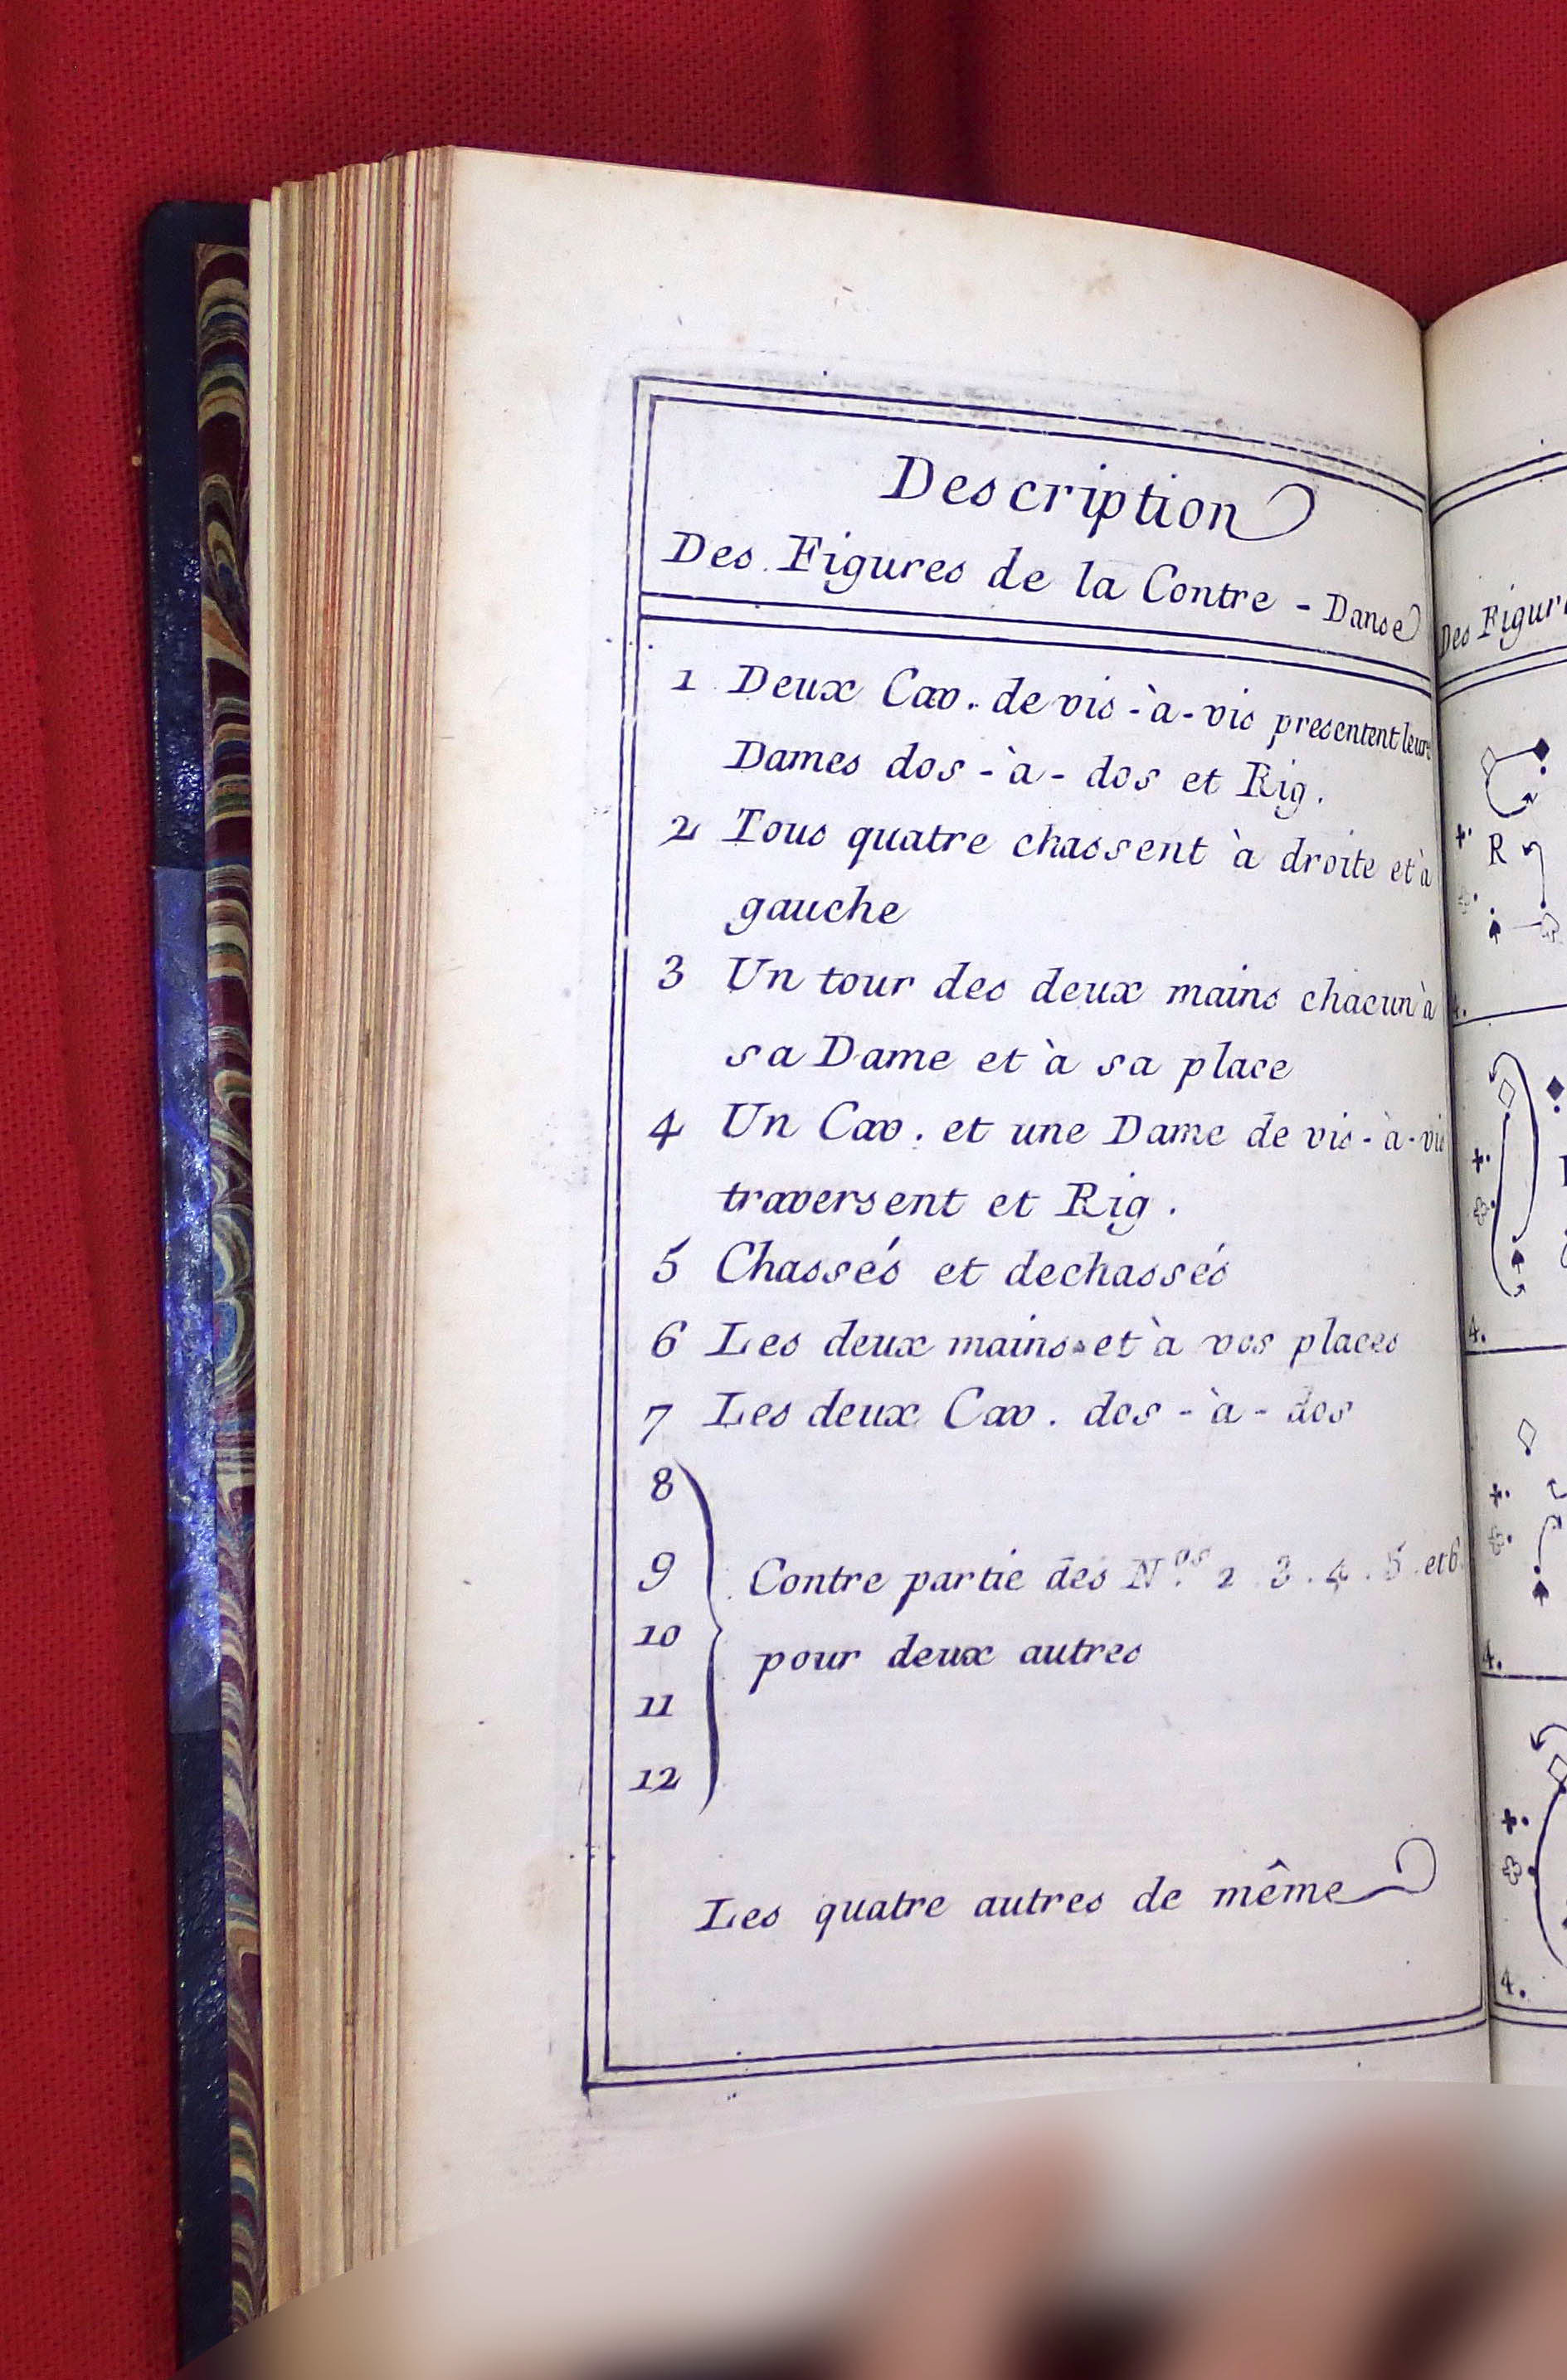 Description
Des Figures de la Contre - Danse
1 Deux Cav. de vis-à-vis presentent leurs
Dames dos-à-dos et Rig.
2 Tous quatre chassent à droite et à
gauche
3 Un tour des deux mains chacun à
sa Dame et à sa place
4 Un Cav. et une Dame de vis-à-vis
traversent et Rig.
5 Chassés et dechassés
6 Les deux mains et à vos places
7 Les deux Cav. dos-à-dos
8
9 Contre partie des N.os 2. 3. 4. 5. et 6.
10
pour deux autres
11
12
Les quatre autres de même
Des Figur
R
4.
4.
4.
4.